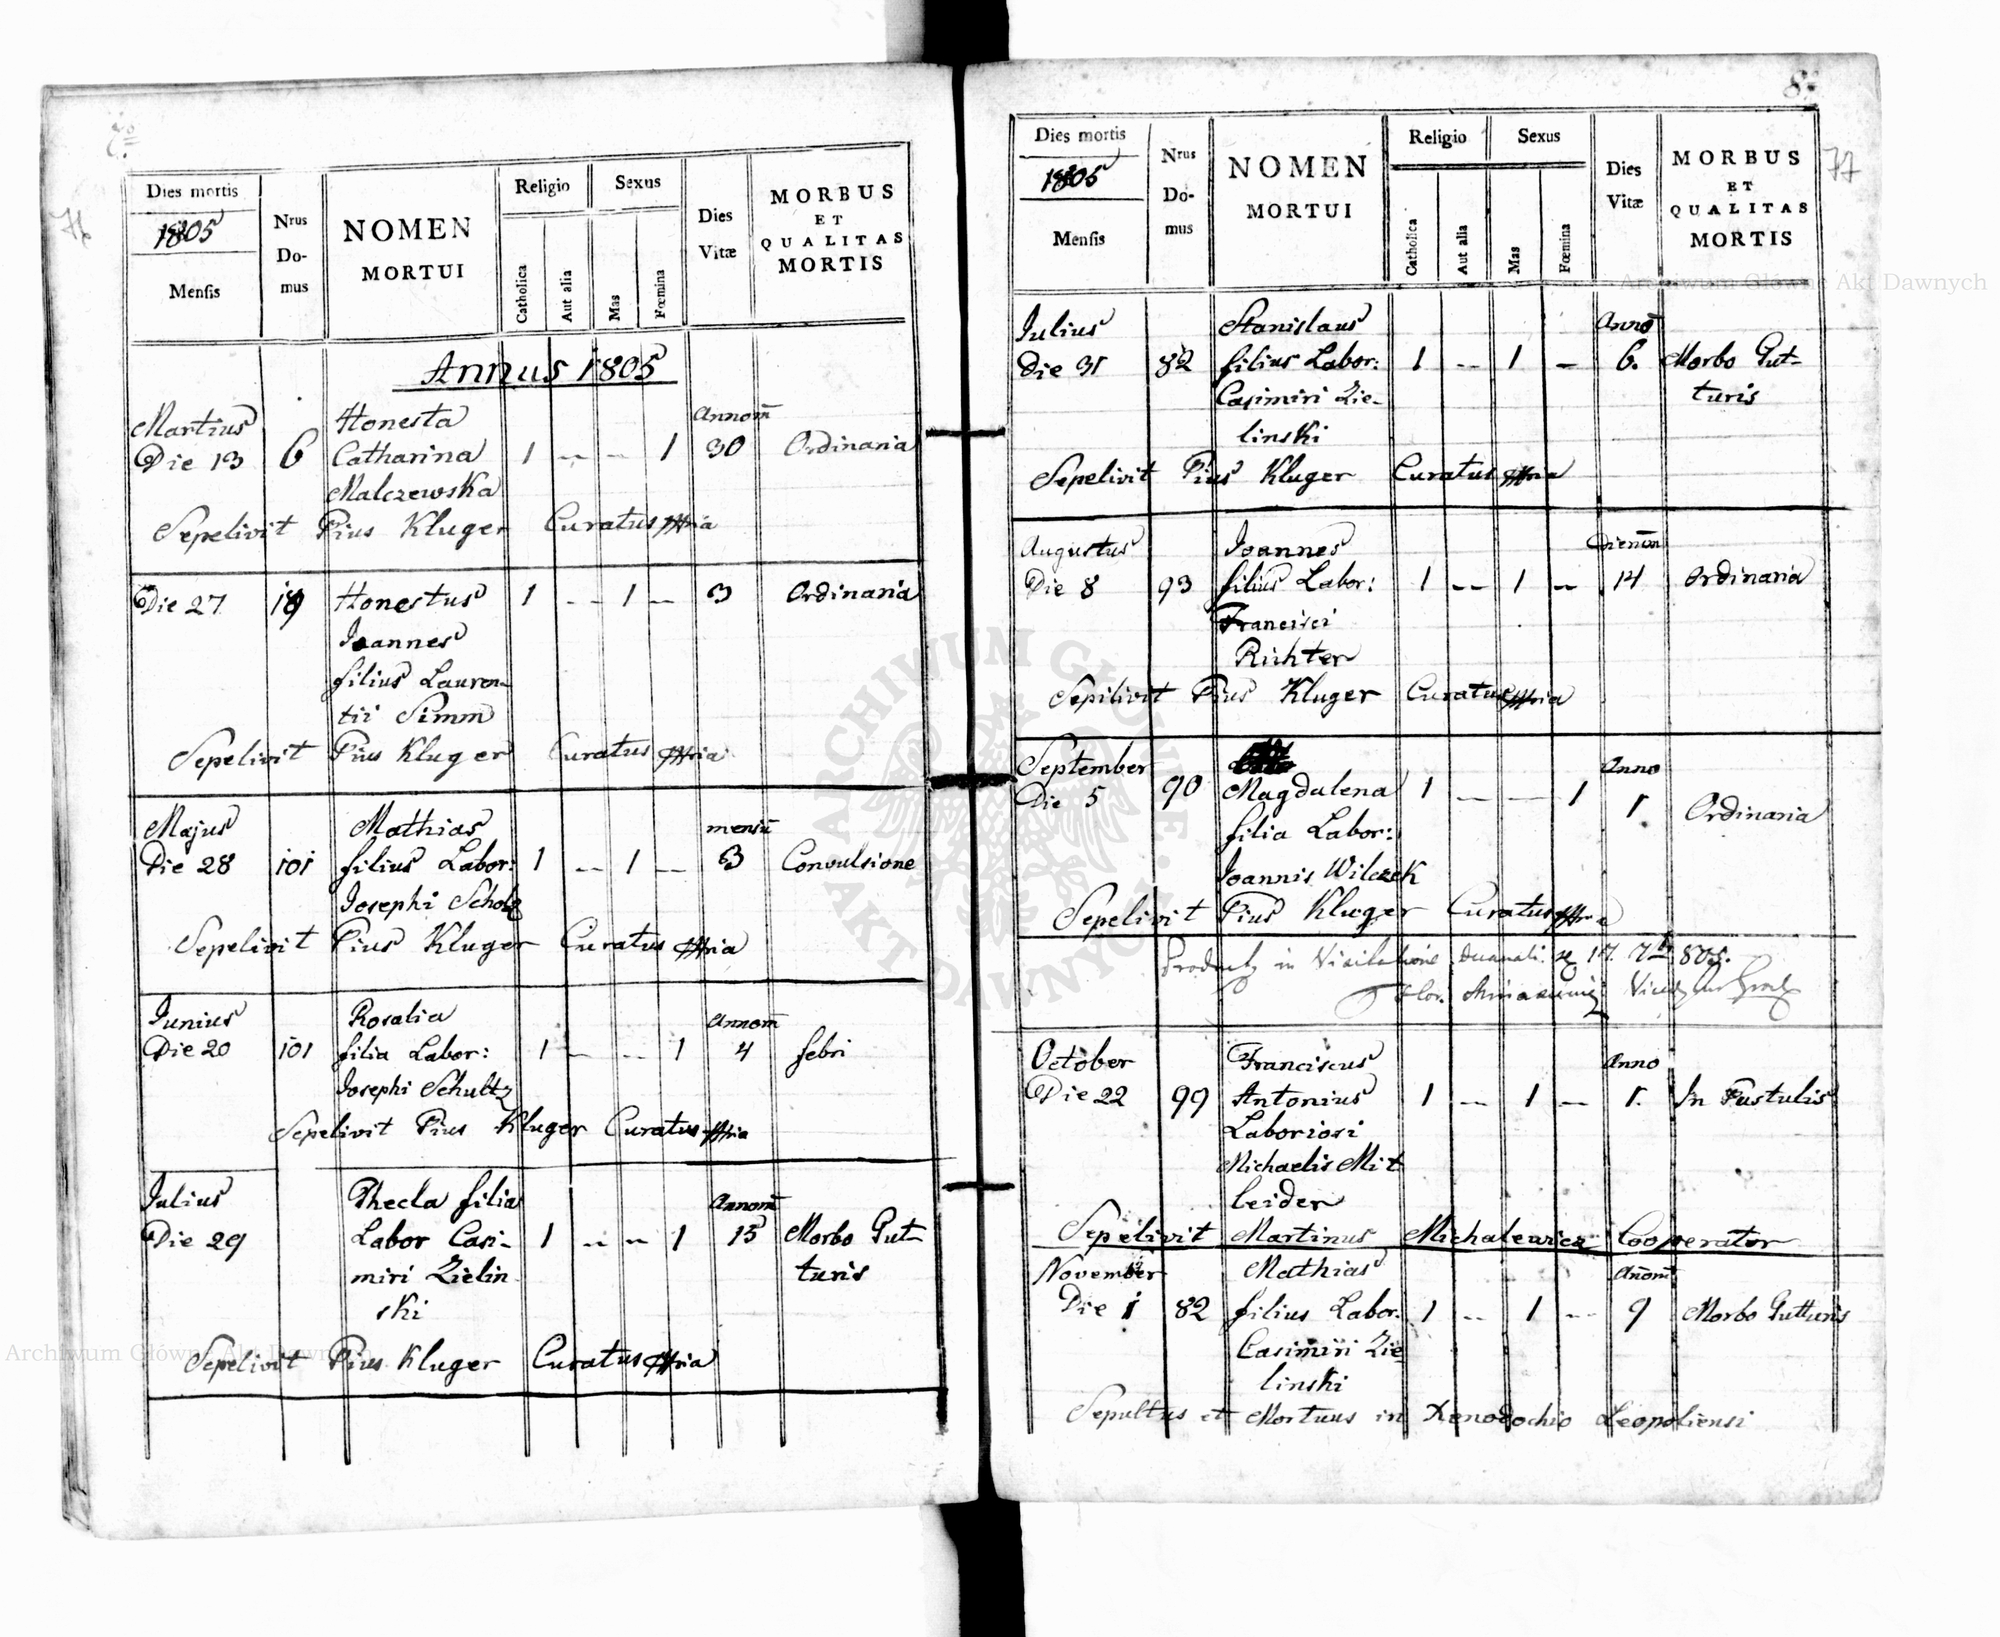 7.
76
Dies mortis
1805
Mensis
Nrus
Do-
mus
NOMEN
MORTUI
Religio
Catholica
Aut alia
Sexus
Mas
Fœmina
Dies
Vitæ
MORBUS
ET
QUALITAS
MORTIS
Annus 1805
Martius
Die 13
6
Honesta
Catharina
Malczewska
1 -- -- 1
Annom̄
30
Ordinaria
Sepelivit Pius Kluger Curatus
Die 27
19
Honestus
Joannes
filius Lauren-
tii Simm
1 -- 1 --
3
Ordinaria
Sepelivit Pius Kluger Curatus
Majus
Die 28
101
Mathias
filius Labor:
Josephi Scholz
1 -- 1 --
mensiū
3
Convulsione
Sepelivit Pius Kluger Curatus
Junius
Die 20
101
Rosalia
filia Labor:
Josephi Schultz
1 -- -- 1
Annom̄
4
febri
Sepelivit Pius Kluger Curatus
Julius
Die 29
Thecla filia
Labor Casi-
miri Zielin
ski
1 -- -- 1
Annom̄
15
Morbo Gut-
turis
Sepelivit Pius Kluger Curatus
8.
77
Dies mortis
1805
Mensis
Nrus
Do-
mus
NOMEN
MORTUI
Religio
Catholica
Aut alia
Sexus
Mas
Fœmina
Dies
Vitæ
MORBUS
ET
QUALITAS
MORTIS
Julius
Die 31
82
Stanislaus
filius Labor:
Casimiri Zie-
linski
1 -- 1 --
Annō
6.
Morbo Gut-
turis
Sepelivit Pius Kluger Curatus
Augustus
Die 8
93
Joannes
filius Labor:
Francisci
Richter
1 -- 1 --
Dierum̄
14
Ordinaria
Sepilivit Pius Kluger Curatus
September
Die 5
90
Magdalena
filia Labor:
Joannis Wilczek
1 -- -- 1
Anno
1.
Ordinaria
Sepelivit Pius Kluger Curatus
in Visitatione 805.
October
Die 22
99
Franciscus
Antonius
Laboriosi
Michaelis Mit
leider
1 -- 1 --
Anno
1.
In Pustulis
Sepelivit Martinus Michalewicz Cooperator
November
Die 1
82
Mathias
filius Labor.
Casimiri Zie
linski
1 -- 1 --
Anom̄
9
Morbo Gutturis
Sepultus et Mortuus in Xenodochio Leopoliensi
Archiwum Główne Akt Dawnych
Archiwum Główne Akt Dawnych
ARCHIWUM GŁÓWNE AKT DAWNYCH